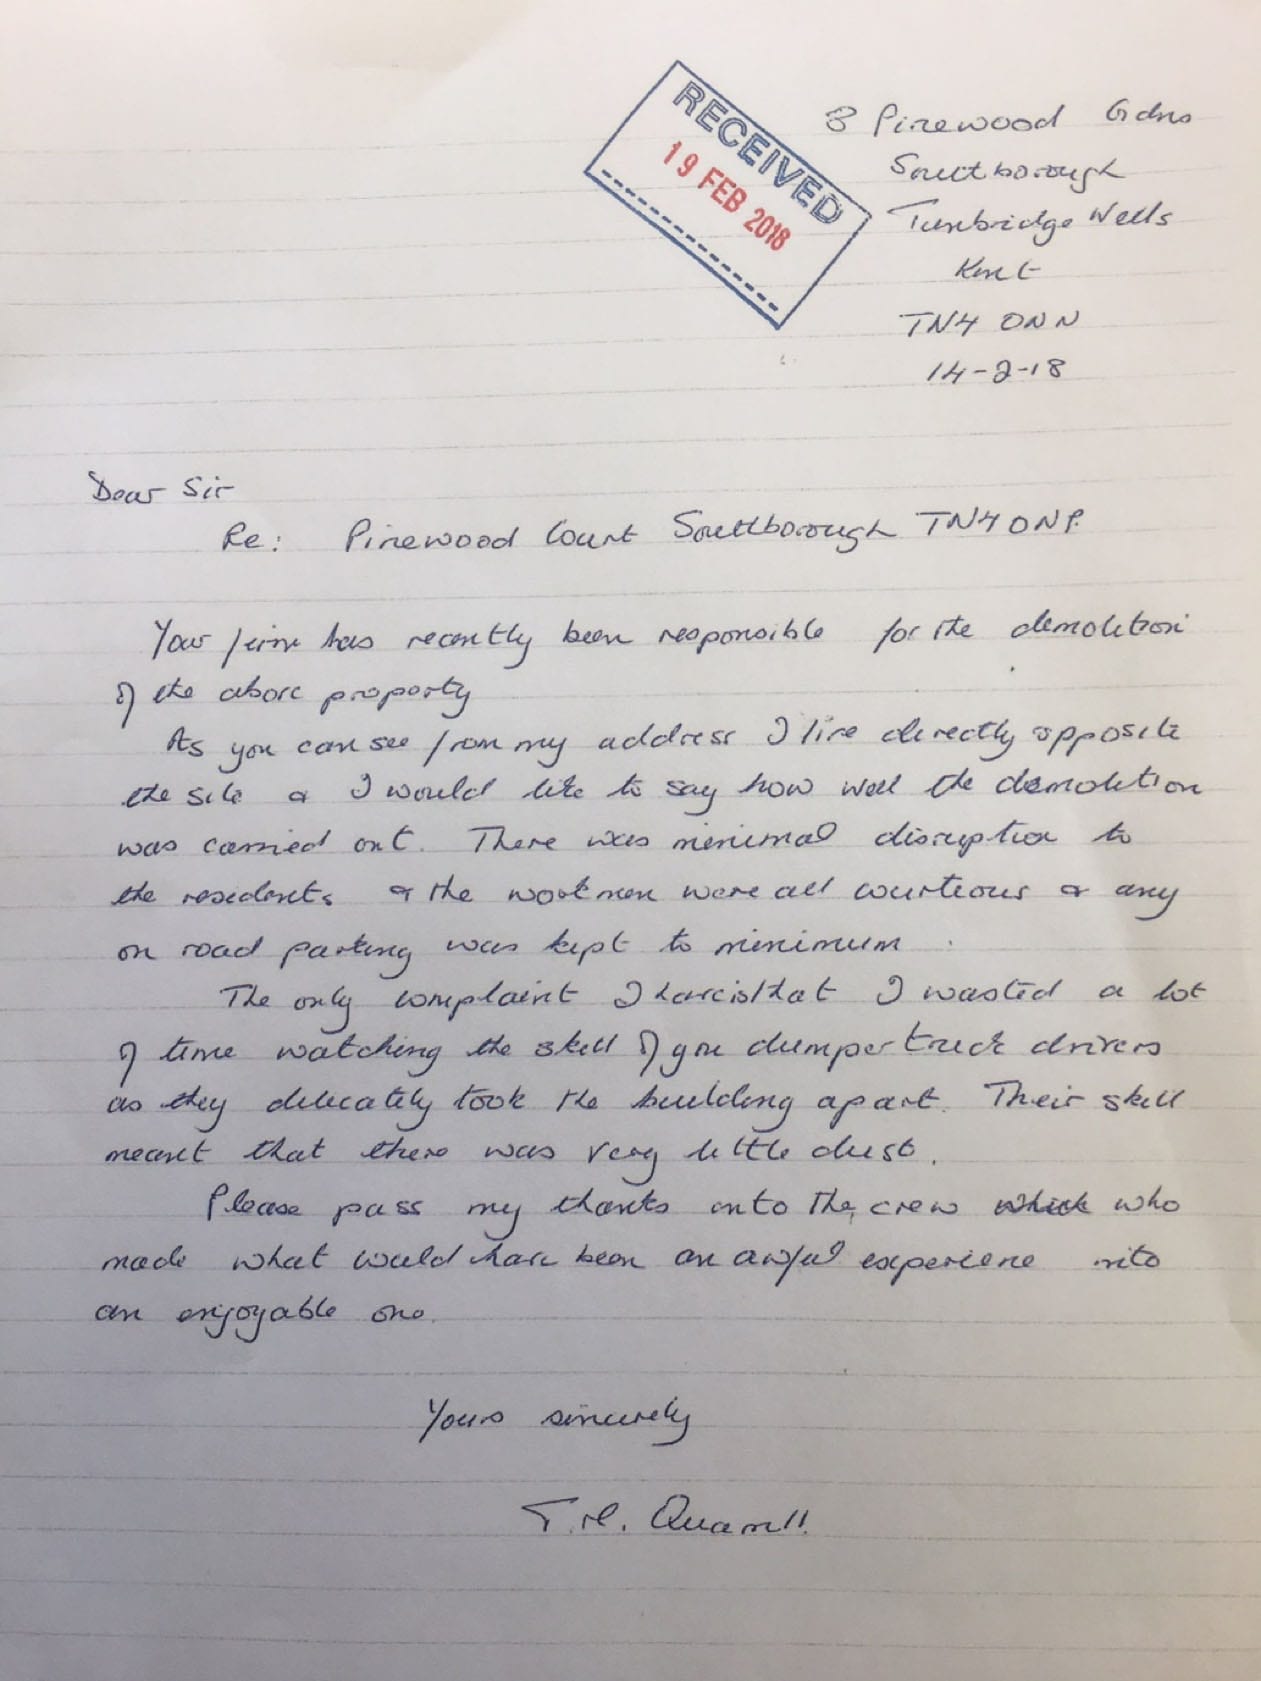 RECEIVED
19 FEB 2018
3 Pinewood Gdns
Southborough
Tunbridge Wells
Kent
TN4 0NN
14-2-18
Dear Sir
Re: Pinewood Court Southborough TN4 0NP.
Your firm has recently been responsible for the demolition
of the above property
As you can see from my address I live directly opposite
the site & I would like to say how well the demolition
was carried out. There was minimal disruption to
the residents & the workmen were all courteous & any
on road parking was kept to minimum.
The only complaint I have is that I wasted a lot
of time watching the skill of you dumper truck drivers
as they delicately took the building apart. Their skill
meant that there was very little dust.
Please pass my thanks onto the crew which who
made what would have been an awful experience into
an enjoyable one.
Yours sincerely